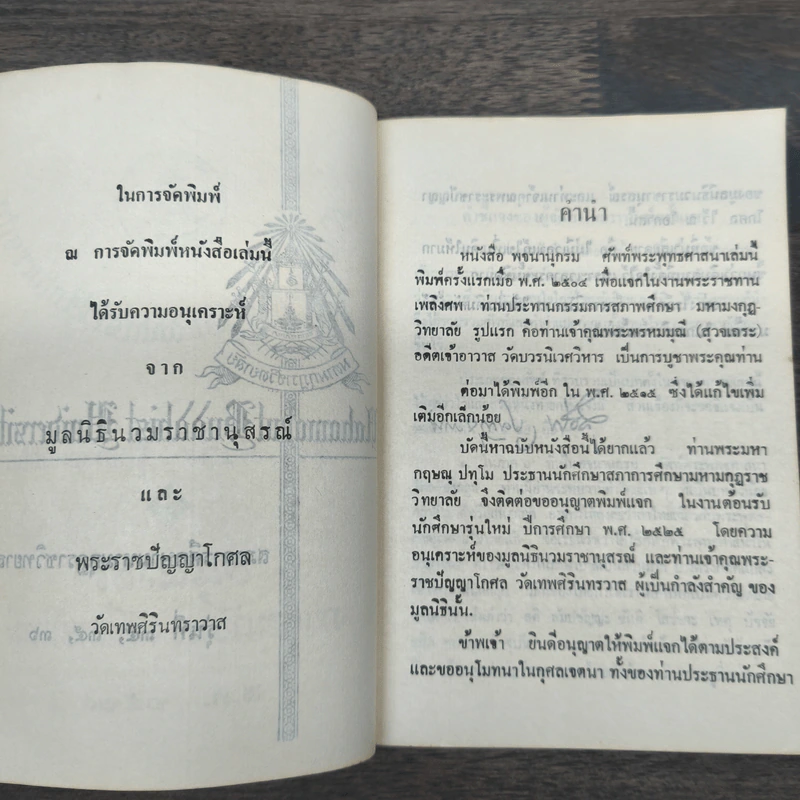 ในการจัดพิมพ์
ณ การจัดพิมพ์หนังสือเล่มนี้
ได้รับความอนุเคราะห์
จาก
มูลนิธินวมราชานุสรณ์
และ
พระราชปัญญาโกศล
วัดเทพศิรินทราวาส
คำนำ
หนังสือ พจนานุกรม ศัพท์พระพุทธศาสนาเล่มนี้
พิมพ์ครั้งแรกเมื่อ พ.ศ. ๒๕๐๔ เพื่อแจกในงานพระราชทาน
เพลิงศพ ท่านประธานกรรมการสภาศึกษา มหามงกุฎ-
วิทยาลัย รูปแรก คือท่านเจ้าคุณพระพรหมมุณี (สุวจเถระ)
อดีตเจ้าอาวาส วัดบวรนิเวศวิหาร เป็นการบูชาพระคุณท่าน
ต่อมาได้พิมพ์อีก ใน พ.ศ. ๒๕๑๕ ซึ่งได้แก้ไขเพิ่ม
เติมอีกเล็กน้อย
บัดนี้หาฉบับหนังสือนี้ได้ยากแล้ว ท่านพระมหา
กฤษณุ ปทุโม ประธานนักศึกษาสภาการศึกษามหามกุฎราช
วิทยาลัย จึงติดต่อขออนุญาตพิมพ์แจก ในงานต้อนรับ
นักศึกษารุ่นใหม่ ปีการศึกษา พ.ศ. ๒๕๒๕ โดยความ
อนุเคราะห์ของมูลนิธินวมราชานุสรณ์ และท่านเจ้าคุณพระ-
ราชปัญญาโกศล วัดเทพศิรินทรวาส ผู้เป็นกำลังสำคัญ ของ
มูลนิธินั้น.
ข้าพเจ้า ยินดีอนุญาตให้พิมพ์แจกได้ตามประสงค์
และขออนุโมทนาในกุศลเจตนา ทั้งของท่านประธานนักศึกษา